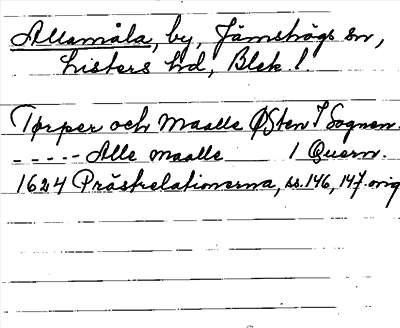 Allamåla, by, Jämshögs sn,
Listers hd, Blek. l.
Torper och Maalle Østen I Sognen.
- - - - - Alle maalle 1 Quern.
1624 Prästrelationerna, ss. 146, 147. orig